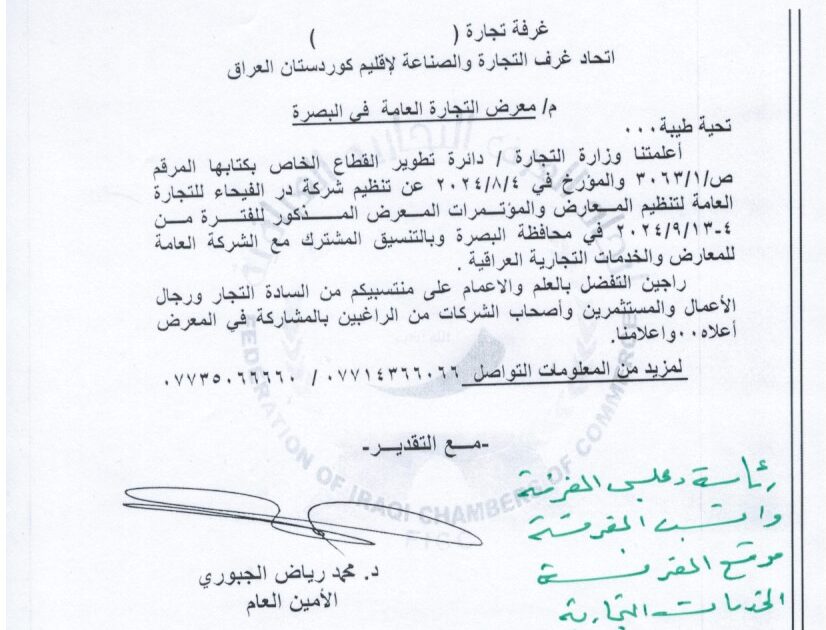 غرفة تجارة (                    )
اتحاد غرف التجارة والصناعة لإقليم كوردستان العراق
م/ معرض التجارة العامة في البصرة
تحية طيبة...
أعلمتنا وزارة التجارة / دائرة تطوير القطاع الخاص بكتابها المرقم
ص/٣٠٦٣/١ والمؤرخ في ٢٠٢٤/٨/٤ عن تنظيم شركة در الفيحاء للتجارة
العامة لتنظيم المعارض والمؤتمرات المعرض المذكور للفترة من
٤-٢٠٢٤/٩/١٣ في محافظة البصرة وبالتنسيق المشترك مع الشركة العامة
للمعارض والخدمات التجارية العراقية .
راجين التفضل بالعلم والاعمام على منتسبيكم من السادة التجار ورجال
الأعمال والمستثمرين وأصحاب الشركات من الراغبين بالمشاركة في المعرض
أعلاه..واعلامنا.
لمزيد من المعلومات التواصل ٠٧٧١٤٣٦٦٠٦٦ / ٠٧٧٣٥٠٦٦٦٦٠
-مع التقدير-
د. محمد رياض الجبوري
الأمين العام
رئاسة
موقع الغرفة
الخدمات التجارية
FEDERATION OF IRAQI CHAMBERS OF COMMERCE
FICC